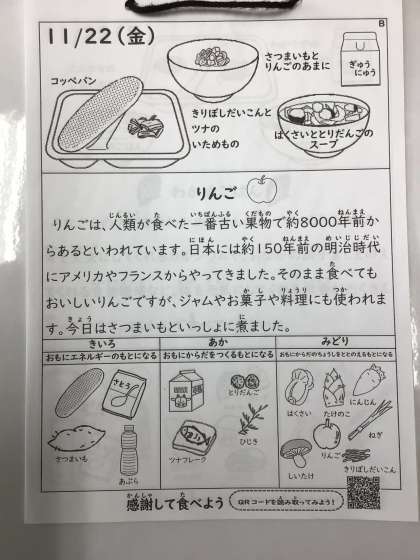 B
11/22(金)
さつまいもと
りんごのあまに
ぎゅう
にゅう
コッペパン
きりぼしだいこんと
ツナの
いためもの
はくさいととりだんごの
スープ
りんご
りんごは、人類が食べた一番古い果物で約8000年前か
らあるといわれています。日本には約150年前の明治時代
にアメリカやフランスからやってきました。そのまま食べても
おいしいりんごですが、ジャムやお菓子や料理にも使われま
す。今日はさつまいもといっしょに煮ました。
きいろ
おもにエネルギーのもとになる
さとう
さつまいも
あぶら
あか
おもにからだをつくるもとになる
とりだんご
ひじき
ツナフレーク
みどり
おもにからだのちょうしをととのえるもとになる
はくさい
たけのこ
にんじん
ねぎ
りんご
しいたけ
きりぼしだいこん
感謝して食べよう
QRコードを読み取ってみよう!